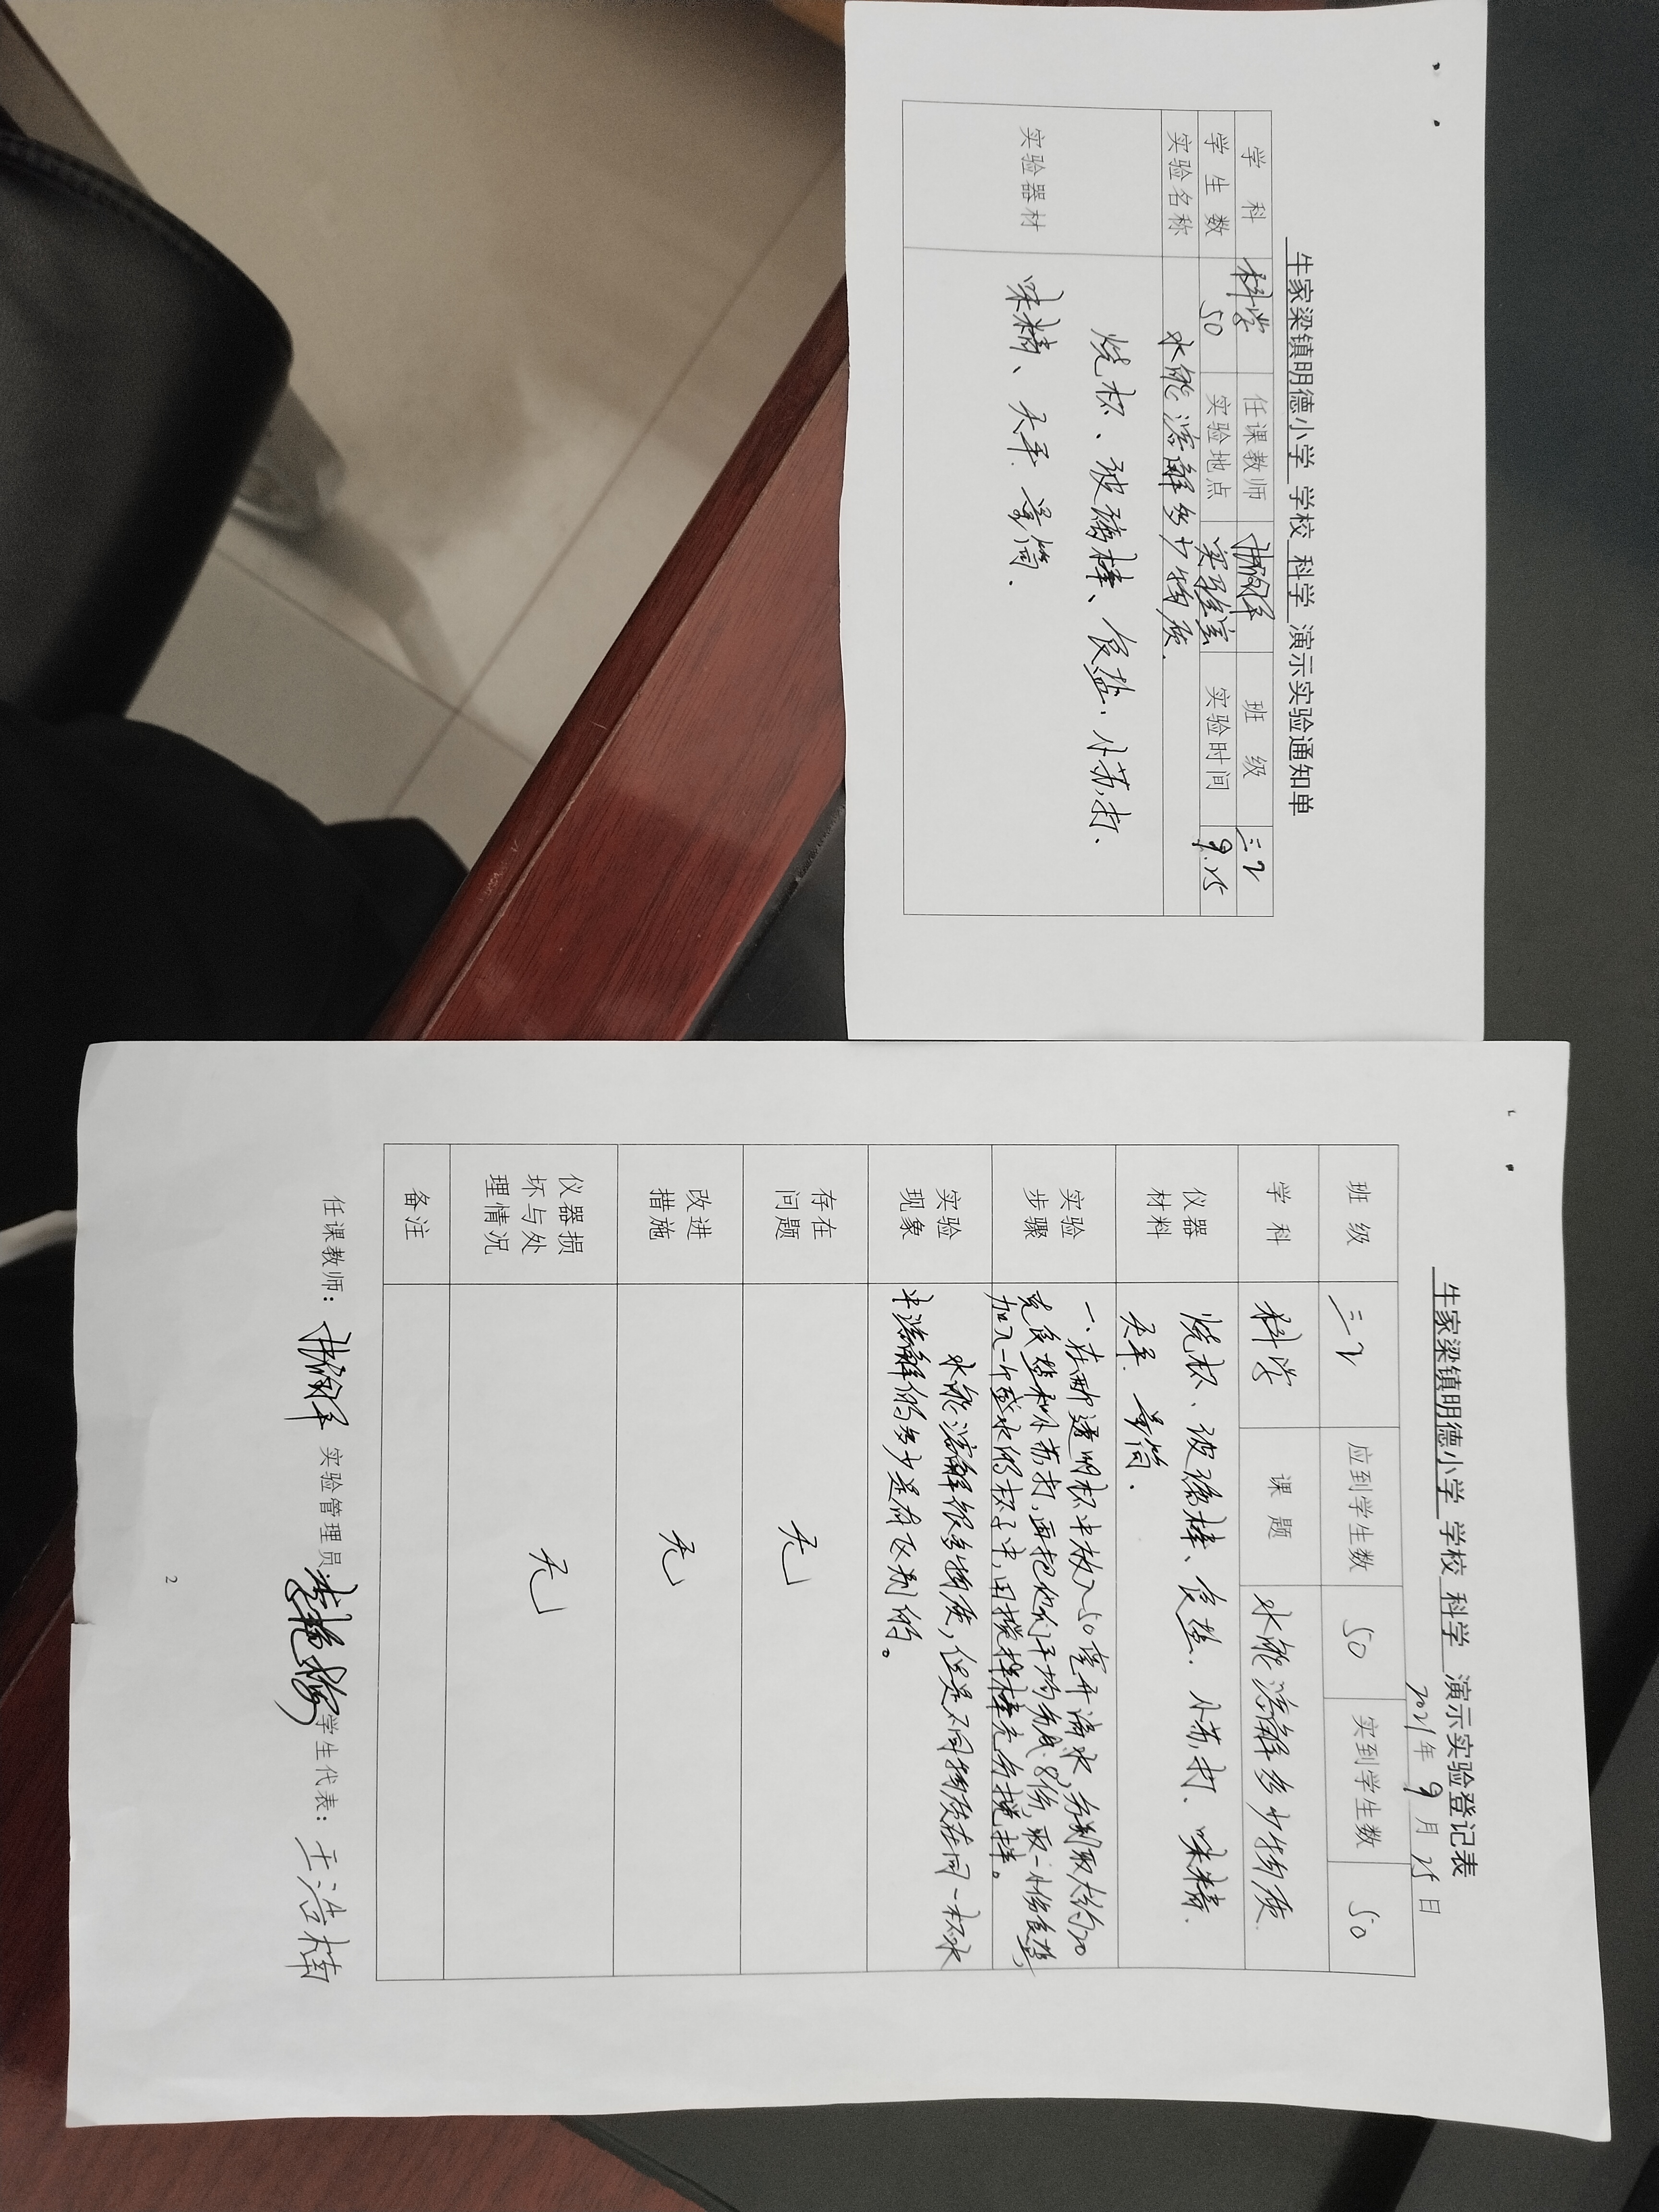 牛家梁镇明德小学 学校 科学 演示实验通知单
学 科 科学 任课教师 班 级 三2
学 生 数 50 实验地点 实验室 实验时间 9.25
实验名称 水能溶解多少物质.
实验器材 烧杯、玻璃棒、食盐、小苏打、
味精、天平、量筒.
牛家梁镇明德小学 学校 科学 演示实验登记表
2021年 9 月 25 日
班 级 三2 应到学生数 50 实到学生数 50
学 科 科学 课 题 水能溶解多少物质.
仪器材料 烧杯、玻璃棒、食盐、小苏打、味精.
天平、量筒.
实验步骤 一、在两透明杯中放入50毫升清水,分别取大约20
克食盐和小苏打,再把他们平均分成8份,取一小份食盐,
加入一个盛水的杯子中,用搅拌棒充分搅拌。
实验现象 水能溶解很多物质,但是不同物质在同一杯水
中溶解的多少是有区别的。
存在问题 无
改进措施 无
仪器损坏与处理情况 无
备注
任课教师: 实验管理员: 学生代表: 王浩楠
2